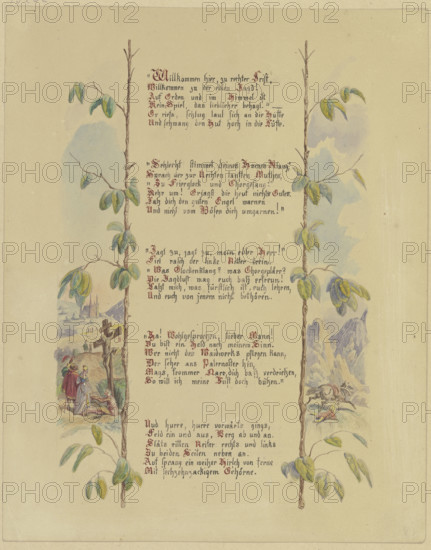 "Willkommen hier, zu rechter Frist,
Willkommen zu der edlen Jagd!
Auf Erden und im Himmel ist
Kein Spiel, das lieblicher behagt." —
Er riefs, schlug laut sich an die Hüfte
Und schwang den Hut hoch in die Lüfte.
"Schlecht stimmet deines Hornes Klang,"
Sprach der zur Rechten sanften Muthes,
"Zu Feierglock und Chorgesang.
Kehr um! Erjagst dir heut nichts Gutes.
Laß dich den guten Engel warnen
Und nicht vom Bösen dich umgarnen!"
"Jagt zu, jagt zu, mein edler Herr!"
Fiel rasch der linke Ritter drein.
"Was Glockenklang? was Chorgeplärr?
Die Jagdlust mag euch baß erfreun!
Laßt mich, was fürstlich ist, euch lehren,
Und euch von jenem nicht bethören.
Ha! Wohlgesprochen, linker Mann!
Du bist ein Held nach meinem Sinn.
Wer nicht des Waidwerks pflegen kann,
Der scher ans Paternoster hin.
Mags, frommer Narr, dich baß verdrießen,
So will ich meine Lust doch büßen."
Und hurre, hurre vorwärts gings,
Feld ein und aus, Berg ab und an.
Stäts ritten Reiter rechts und links
Zu beiden Seiten neben an.
Auf sprang ein weißer Hirsch von ferne
Mit sechzehnzackigem Gehörne.